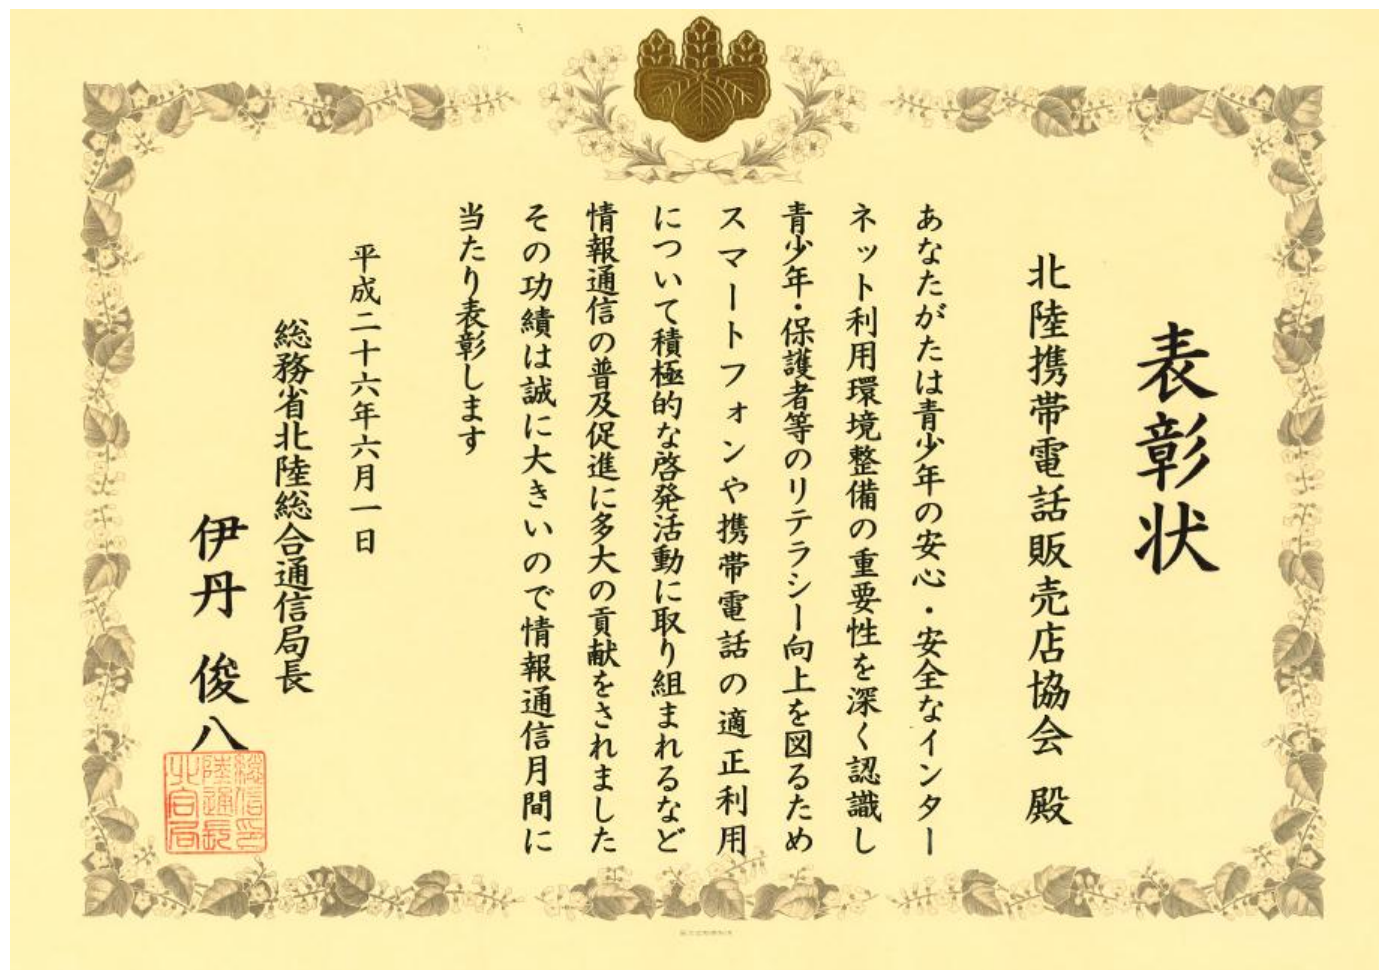 表彰状
北陸携帯電話販売店協会 殿
あなたがたは青少年の安心・安全なインター
ネット利用環境整備の重要性を深く認識し
青少年・保護者等のリテラシー向上を図るため
スマートフォンや携帯電話の適正利用
について積極的な啓発活動に取り組まれるなど
情報通信の普及促進に多大の貢献をされました
その功績は誠に大きいので情報通信月間に
当たり表彰します
平成二十六年六月一日
総務省北陸総合通信局長
伊丹 俊八